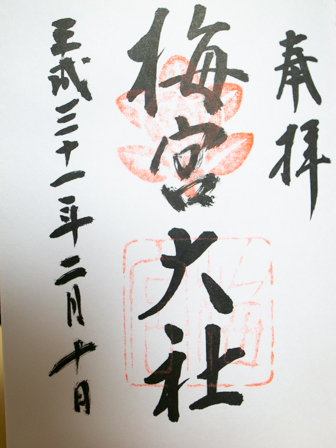 奉拝
梅宮大社
平成三十一年二月十日